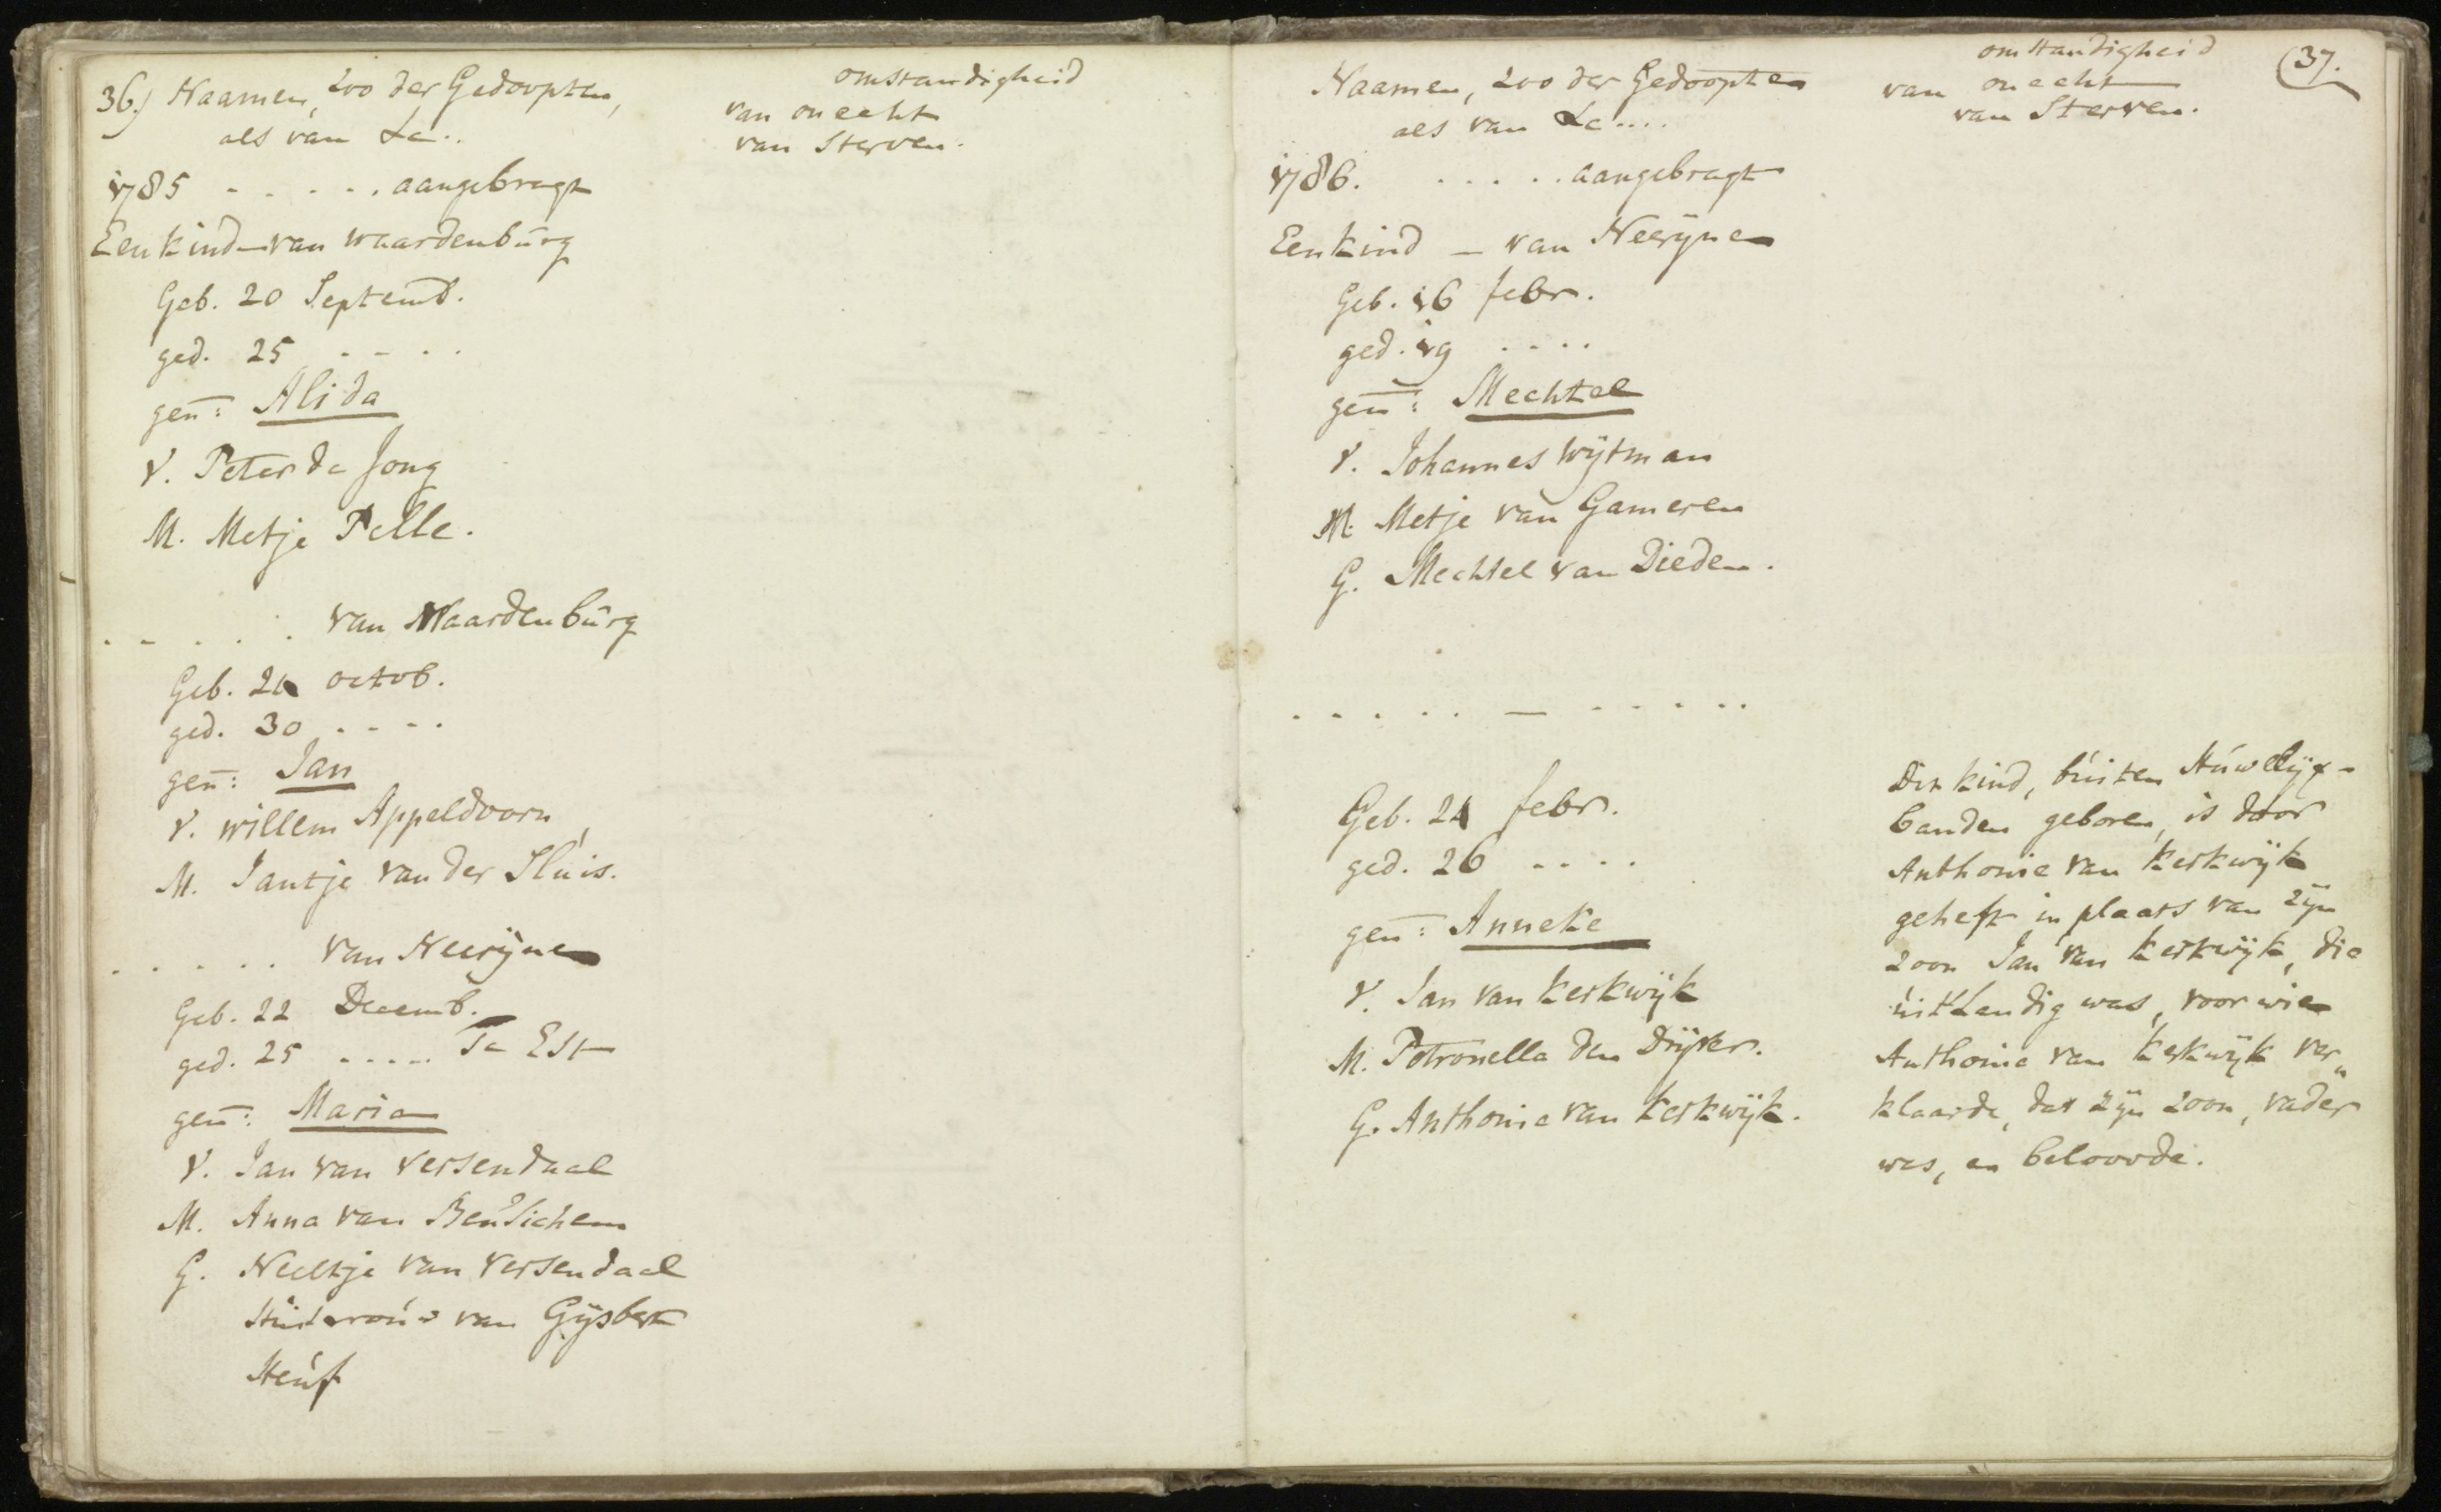 36.) Naamen, zoo der Gedoopten,
als van &c..
omstandigheid
van onecht
van Sterven.
1785 - . - . . . aangebragt
Een kind - van waardenburg
Geb. 20 Septemb.
ged. 25 . - - .
gen̅: Alida
V. Peter de Jong
M. Metje Pelle.
. - . . . . van Waardenburg
Geb. 21 octob.
ged. 30 . - - .
gen̅: Jan
V. willem Appeldoorn
M. Jantje van der Sluis.
. . . . . . van Neerijnen
Geb. 22 Decemb.
ged. 25 . . . . . Te Est
gen̅: Maria
V. Jan van Versendaal
M. Anna van Beusichem
G. Neeltje van Versendaal
Huisvrouw van Gijsbert
Heuff
Naamen, zoo der Gedoopten
als van &c....
omstandigheid
van onecht
van Sterven.
37.
1786. . . . . . aangebragt
Een kind - van Neerijnen
Geb. 16 febr.
ged. 19 . . . .
gen̅: Mechtel
V. Johannes Wijtman
M. Metje van Gameren
G. Mechtel van Dieden.
. . . . . — . . . . .
Geb. 21 febr.
ged. 26 . . . .
gen̅: Anneke
V. Jan van Kerkwijk
M. Petronella den Drijver.
G. Anthonie van Kerkwijk.
Dit kind, buiten Huwelijx-
banden geboren, is door
Anthonie van Kerkwijk
geheft in plaats van zijn
zoon Jan van Kerkwijk, die
uitlandig was, voor wien
Anthonie van Kerkwijk ver„
klaarde, dat zijn zoon, vader
was, en beloovde.